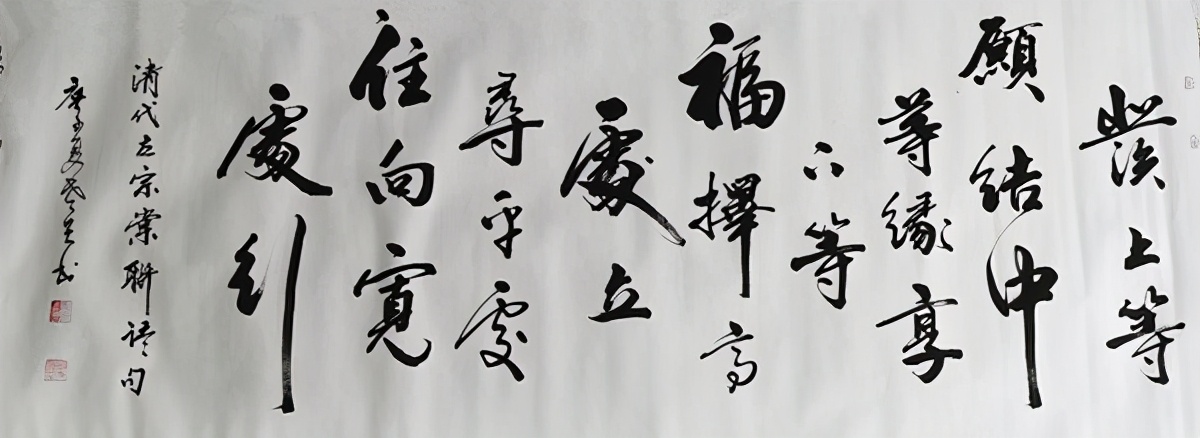 發上等
願結中
等緣享
下等
福擇高
處立
尋平處
住向寬
處行
清代左宗棠聯語句
庚子夏書